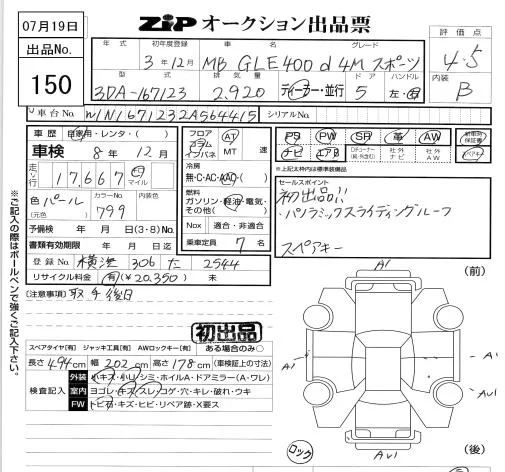 07月19日
ZIP オークション出品票
出品No.
150
評価点
4.5
内装
B
年式 初年度登録 車名 グレード
3年12月 MB GLE400d 4M スポーツ
型式 排気量 ドア ハンドル
3DA-167123 2,920 ディーラー・並行 5 左・右
車台No. W1N1671232A564415 シリアルNo.
車歴 自家用・レンタ・( )
車検 8年 12月
走行 17,667 km マイル
色 パール (元色) カラーNo. 799 内装色
予備検 年 月 日(3・8)No.
書類有効期限 年 月 日迄
登録No. 横浜 306 た 2544
リサイクル料金 有(¥20,350) 未
フロア コラム インパネ AT MT 速
冷房 無・C・AC・AAC・( )
燃料 ガソリン・軽油・電気・その他( )
Nox 適合・非適合
乗車定員 7名
PS PW SR 革 AW 新車時保証書
ナビ エアB DFコーナー(純・外含む) 社外ナビ 社外AW スペアキー
*上記太枠内は標準装備品
セールスポイント
初出品!!
・パノラミックスライディングルーフ
スペアキー
[注意事項] 取手後日
初出品
スペアタイヤ[有] ジャッキ工具[有] AWロックキー[有] ある場合のみ○
長さ 494cm 幅 202cm 高さ 178cm (車検証上の寸法)
検査記入
外装 小キズ・小凹・シミ・ホイルA・ドアミラー(A・ワレ)
室内 ヨゴレ・キズ・スレ・コゲ・穴・キレ・破れ・ウキ
FW トビ石・キズ・ヒビ・リペア跡・X要ス
※ご記入の際はボールペンで強くご記入下さい。
(前)
A1
A1
AU1
AU1
ロック
(後)